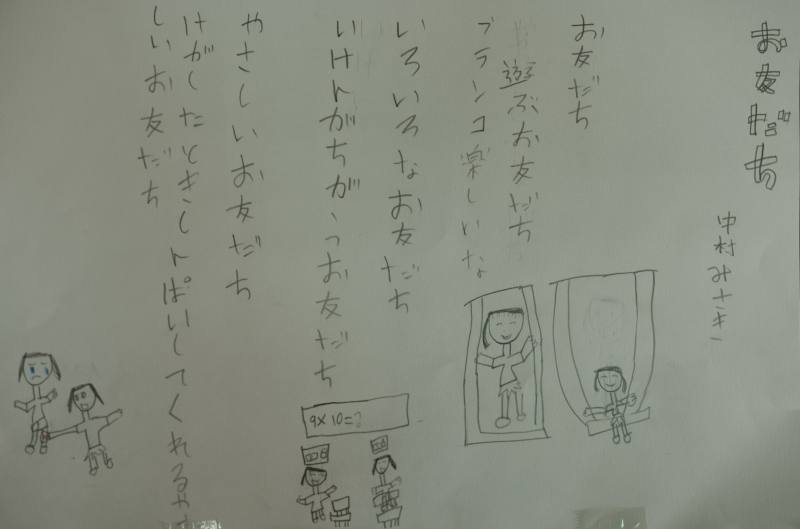 お友だち
中村みさき
お友だち
遊ぶお友だち
ブランコ楽しいな
いろいろなお友だち
いけんがちがうお友だち
やさしいお友だち
けがしたときしんぱいしてくれるやさ
しいお友だち
9×10=?